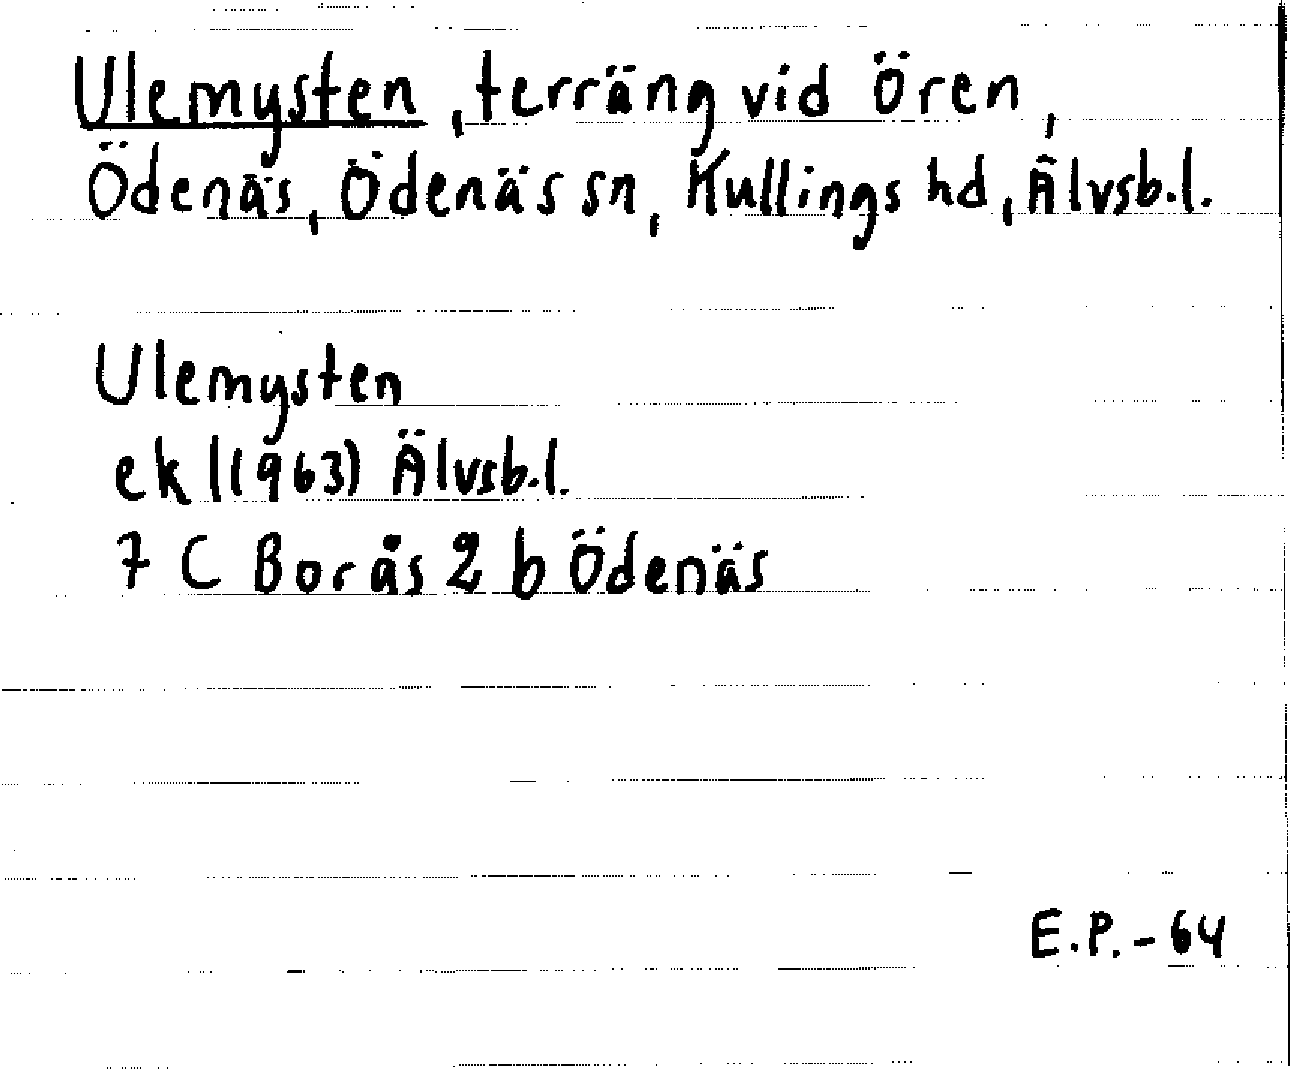 Ulemysten, terräng vid Ören,
Ödenäs, Ödenäs sn, Kullings hd, Älvsb.l.
Ulemysten
ek (1963) Älvsb.l.
7 C Borås 2 b Ödenäs
E.P.-64